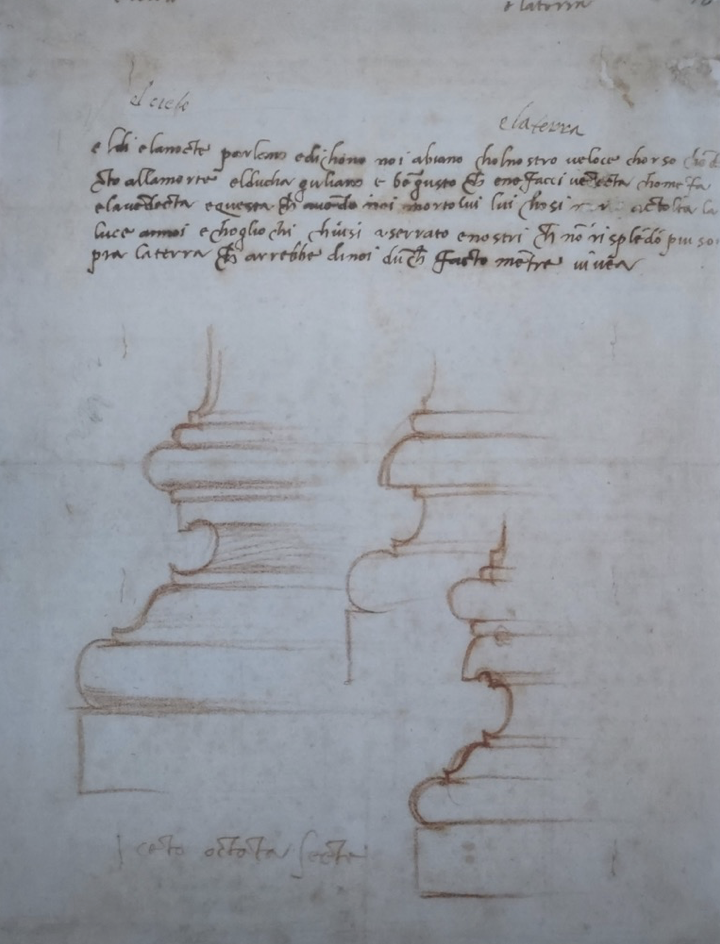 e la terra
el cielo
e la terra
el di e la nocte parlano e dichono noi abiano chol nostro veloce chorso
cto alla morte el ducha guliano e be giusto ch ene facci vedecta chome fa
e la vendecta e questa ch avendo noi morto lui lui chosi tolta la
luce annoi e chogli chiusi a serrato e nostri ch nō rispledō piu so
pra la terra ch arrebbe di noi dūch facto mētre vivea
ceto octota secte